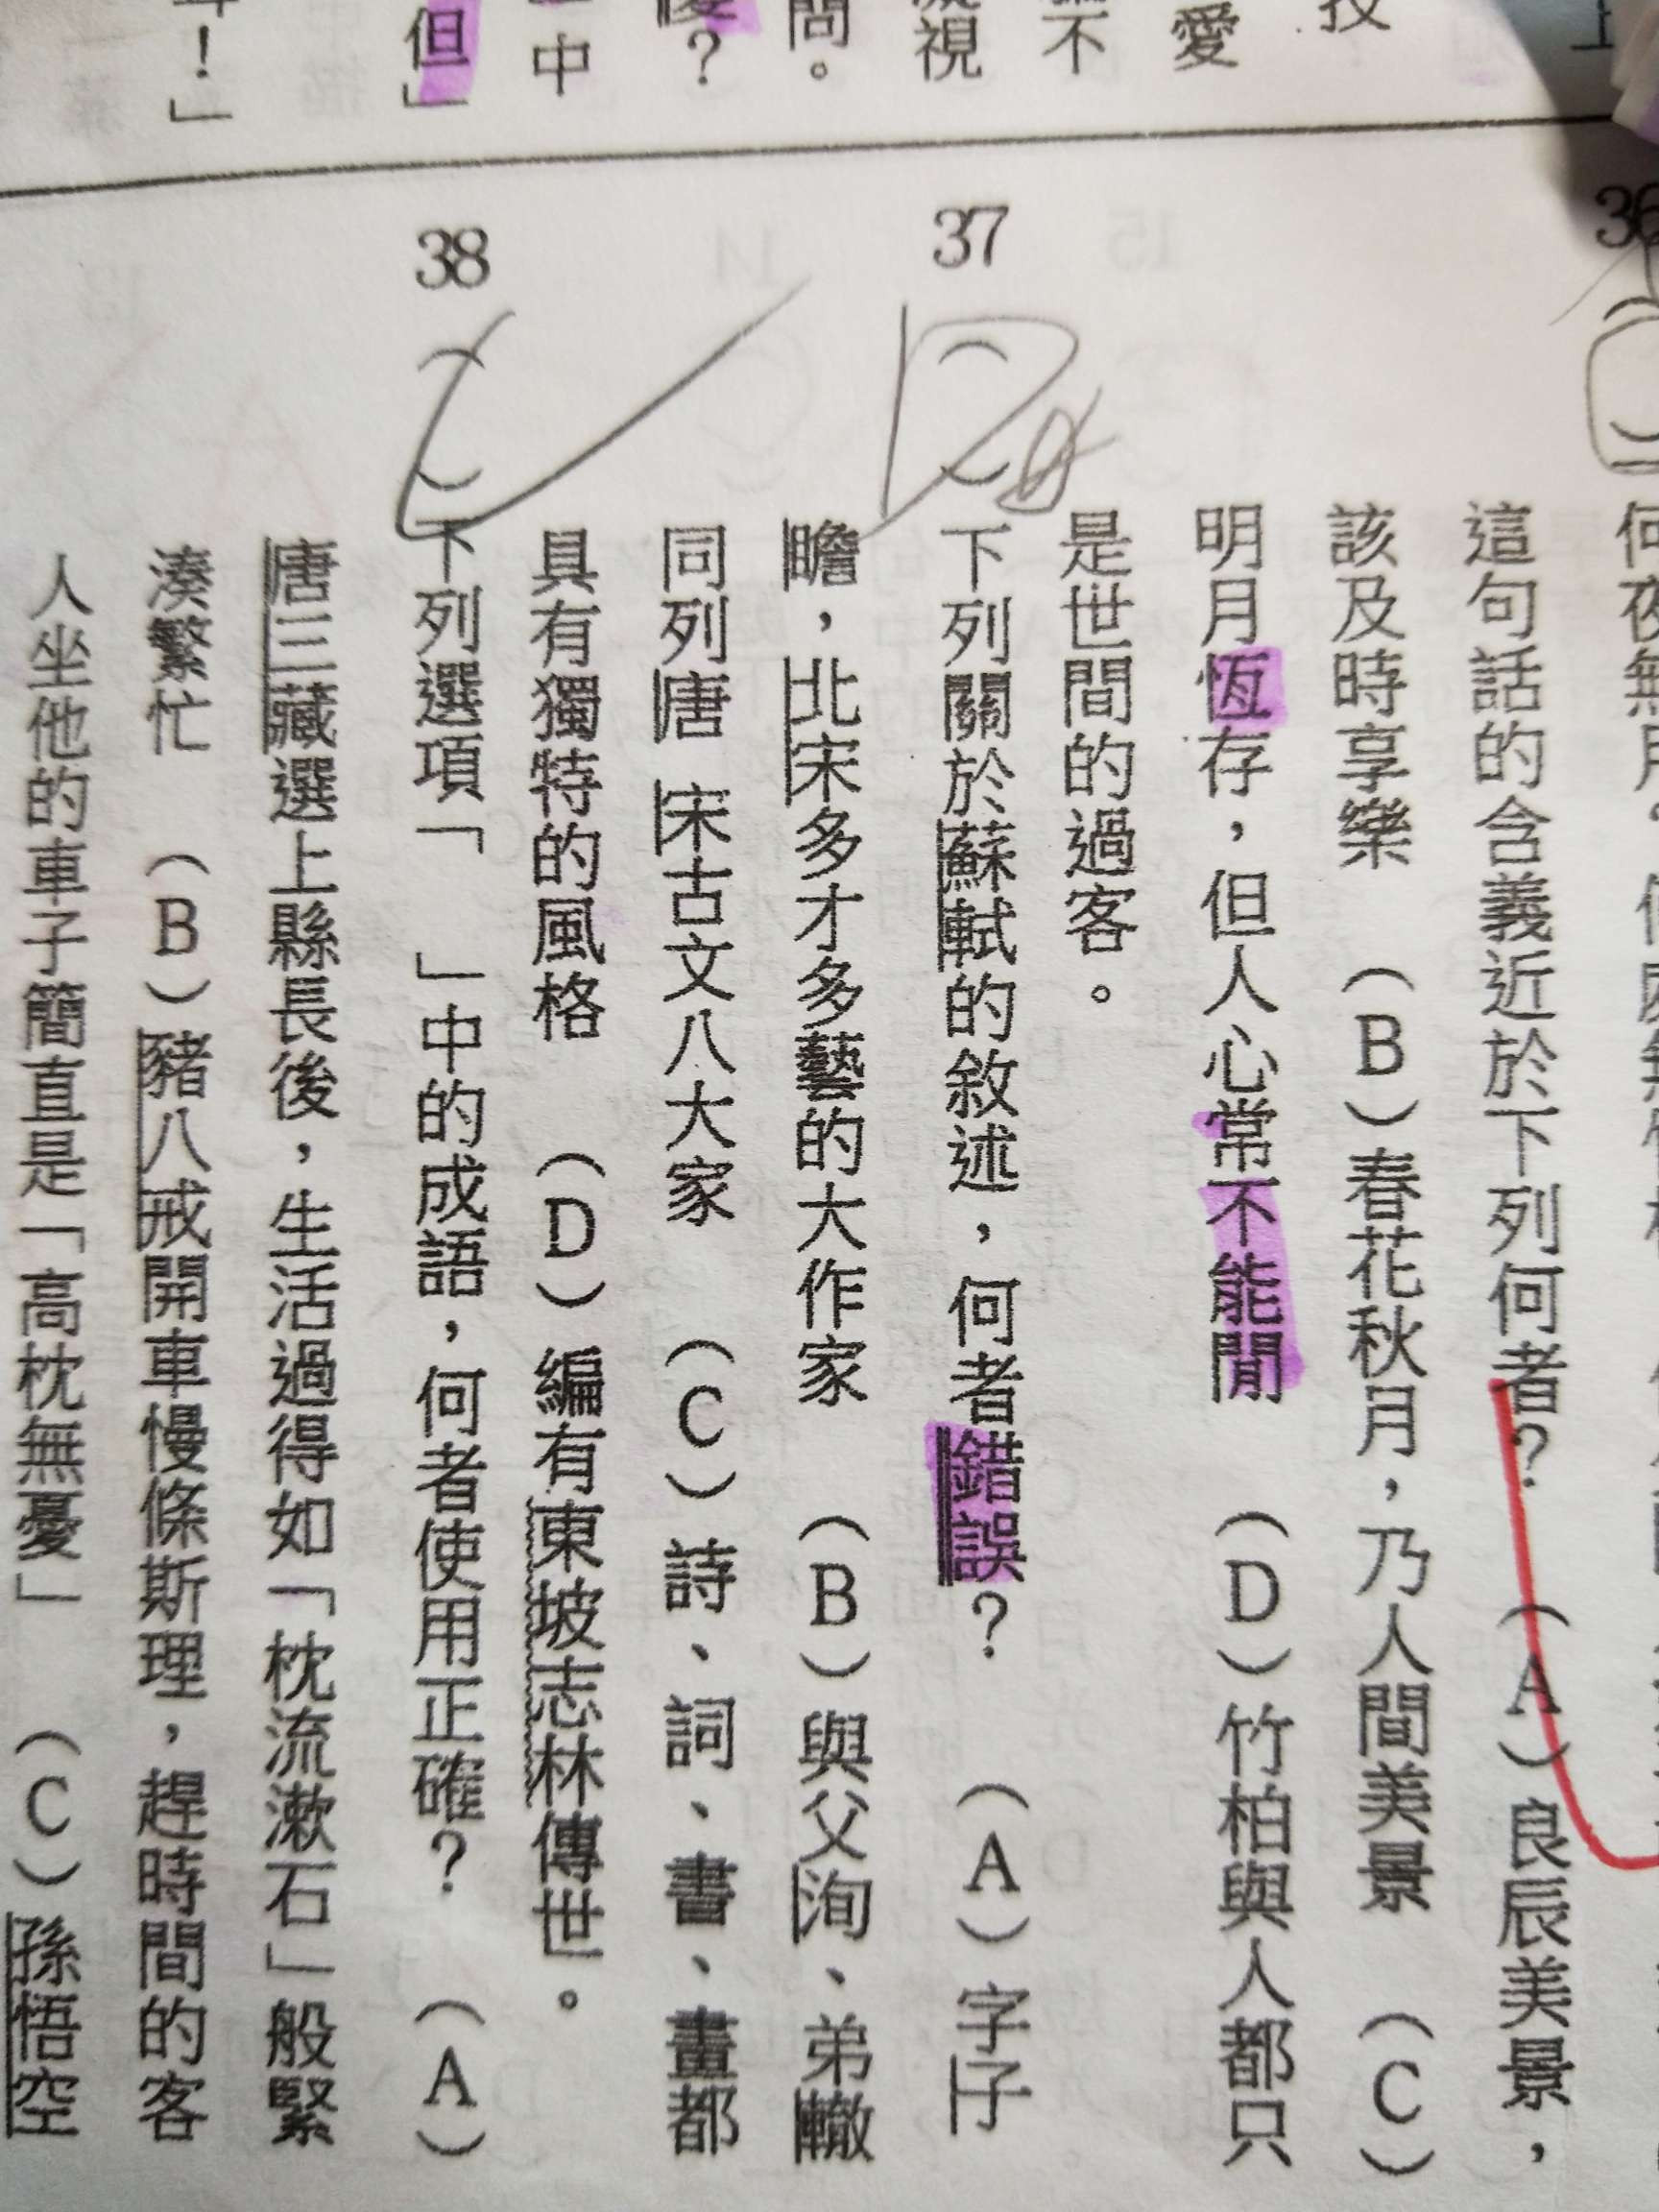 上
技
愛
不
視
問。
？
中
但」
！」
36
何夜無月。何
這句話的含義近於下列何者？　（A）良辰美景，
該及時享樂　（B）春花秋月，乃人間美景　（C）
明月恆存，但人心常不能閒　（D）竹柏與人都只
是世間的過客。
37（　）下列關於蘇軾的敘述，何者錯誤？　（A）字子
瞻，北宋多才多藝的大作家　（B）與父洵、弟轍
同列唐　宋古文八大家　（C）詩、詞、書、畫都
具有獨特的風格　（D）編有東坡志林傳世。
38（　）下列選項「　」中的成語，何者使用正確？　（A）
唐三藏選上縣長後，生活過得如「枕流漱石」般緊
湊繁忙　（B）豬八戒開車慢條斯理，趕時間的客
人坐他的車子簡直是「高枕無憂」　（C）孫悟空